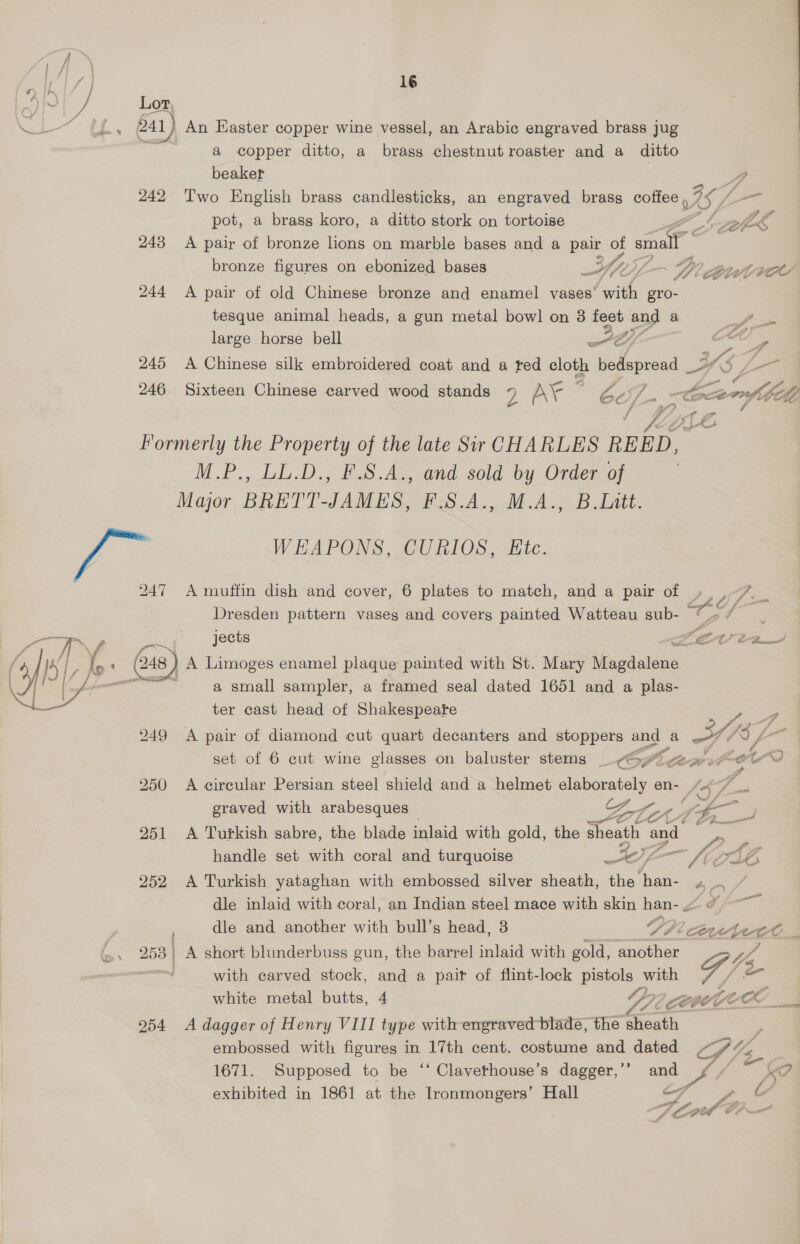 16
Lot,
241 An Easter copper wine vessel, an Arabic engraved brass jug
a copper ditto, a brass chestnut roaster and a ditto
beaker
242 Two English brass candlesticks, an engraved brass coffee
pot, a brass koro, a ditto stork on tortoise
243 A pair of bronze lions on marble bases and a pair of small
bronze figures on ebonized bases
244 A pair of old Chinese bronze and enamel vases' with gro-
tesque animal heads, a gun metal bowl on 3 feet and a
large horse bell
245 A Chinese silk embroidered coat and a red cloth bedspread
246 Sixteen Chinese carved wood stands
Formerly the Property of the late Sir CHARLES REED,
M.P., LL.D., F.S.A., and sold by Order of
Major BRETT-JAMES, F.S.A., M.A., B.Litt.
WEAPONS, CURIOS, Etc.
247 A muffin dish and cover, 6 plates to match, and a pair of
Dresden pattern vases and covers painted Watteau sub-
jects
248 A Limoges enamel plaque painted with St. Mary Magdalene
a small sampler, a framed seal dated 1651 and a plas-
ter cast head of Shakespeare
249 A pair of diamond cut quart decanters and stoppers and a
set of 6 cut wine glasses on baluster stems
250 A circular Persian steel shield and a helmet elaborately en-
graved with arabesques
251 A Turkish sabre, the blade inlaid with gold, the sheath and
handle set with coral and turquoise
252 A Turkish yataghan with embossed silver sheath, the han-
dle inlaid with coral, an Indian steel mace with skin han-
dle and another with bull's head, 3
253 A short blunderbuss gun, the barrel inlaid with gold, another
with carved stock, and a pair of flint-lock pistols with
white metal butts, 4
254 A dagger of Henry VIII type with engraved blade, the sheath
embossed with figures in 17th cent. costume and dated
1671. Supposed to be "Claverhouse's dagger," and
exhibited in 1861 at the Ironmongers' Hall